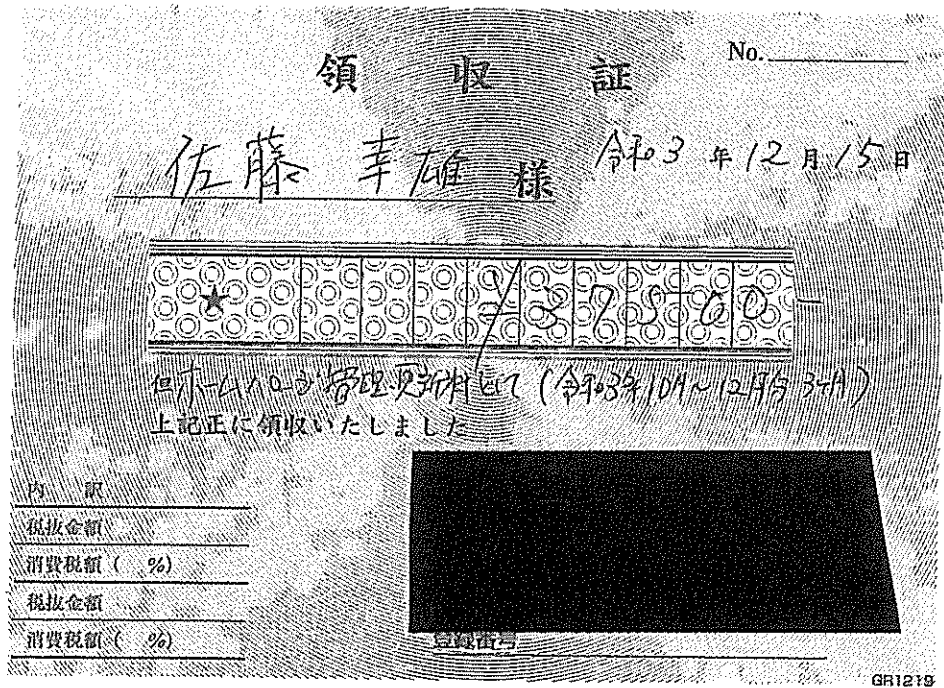 No.
領収証
佐藤 幸雄 様 令和3年12月15日
★ ¥87500-
但ホームページ管理更新料として(令和3年10月~12月分3ヶ月)
上記正に領収いたしました
内訳
税抜金額
消費税額( %)
税抜金額
消費税額( %)
登録番号
GR1219